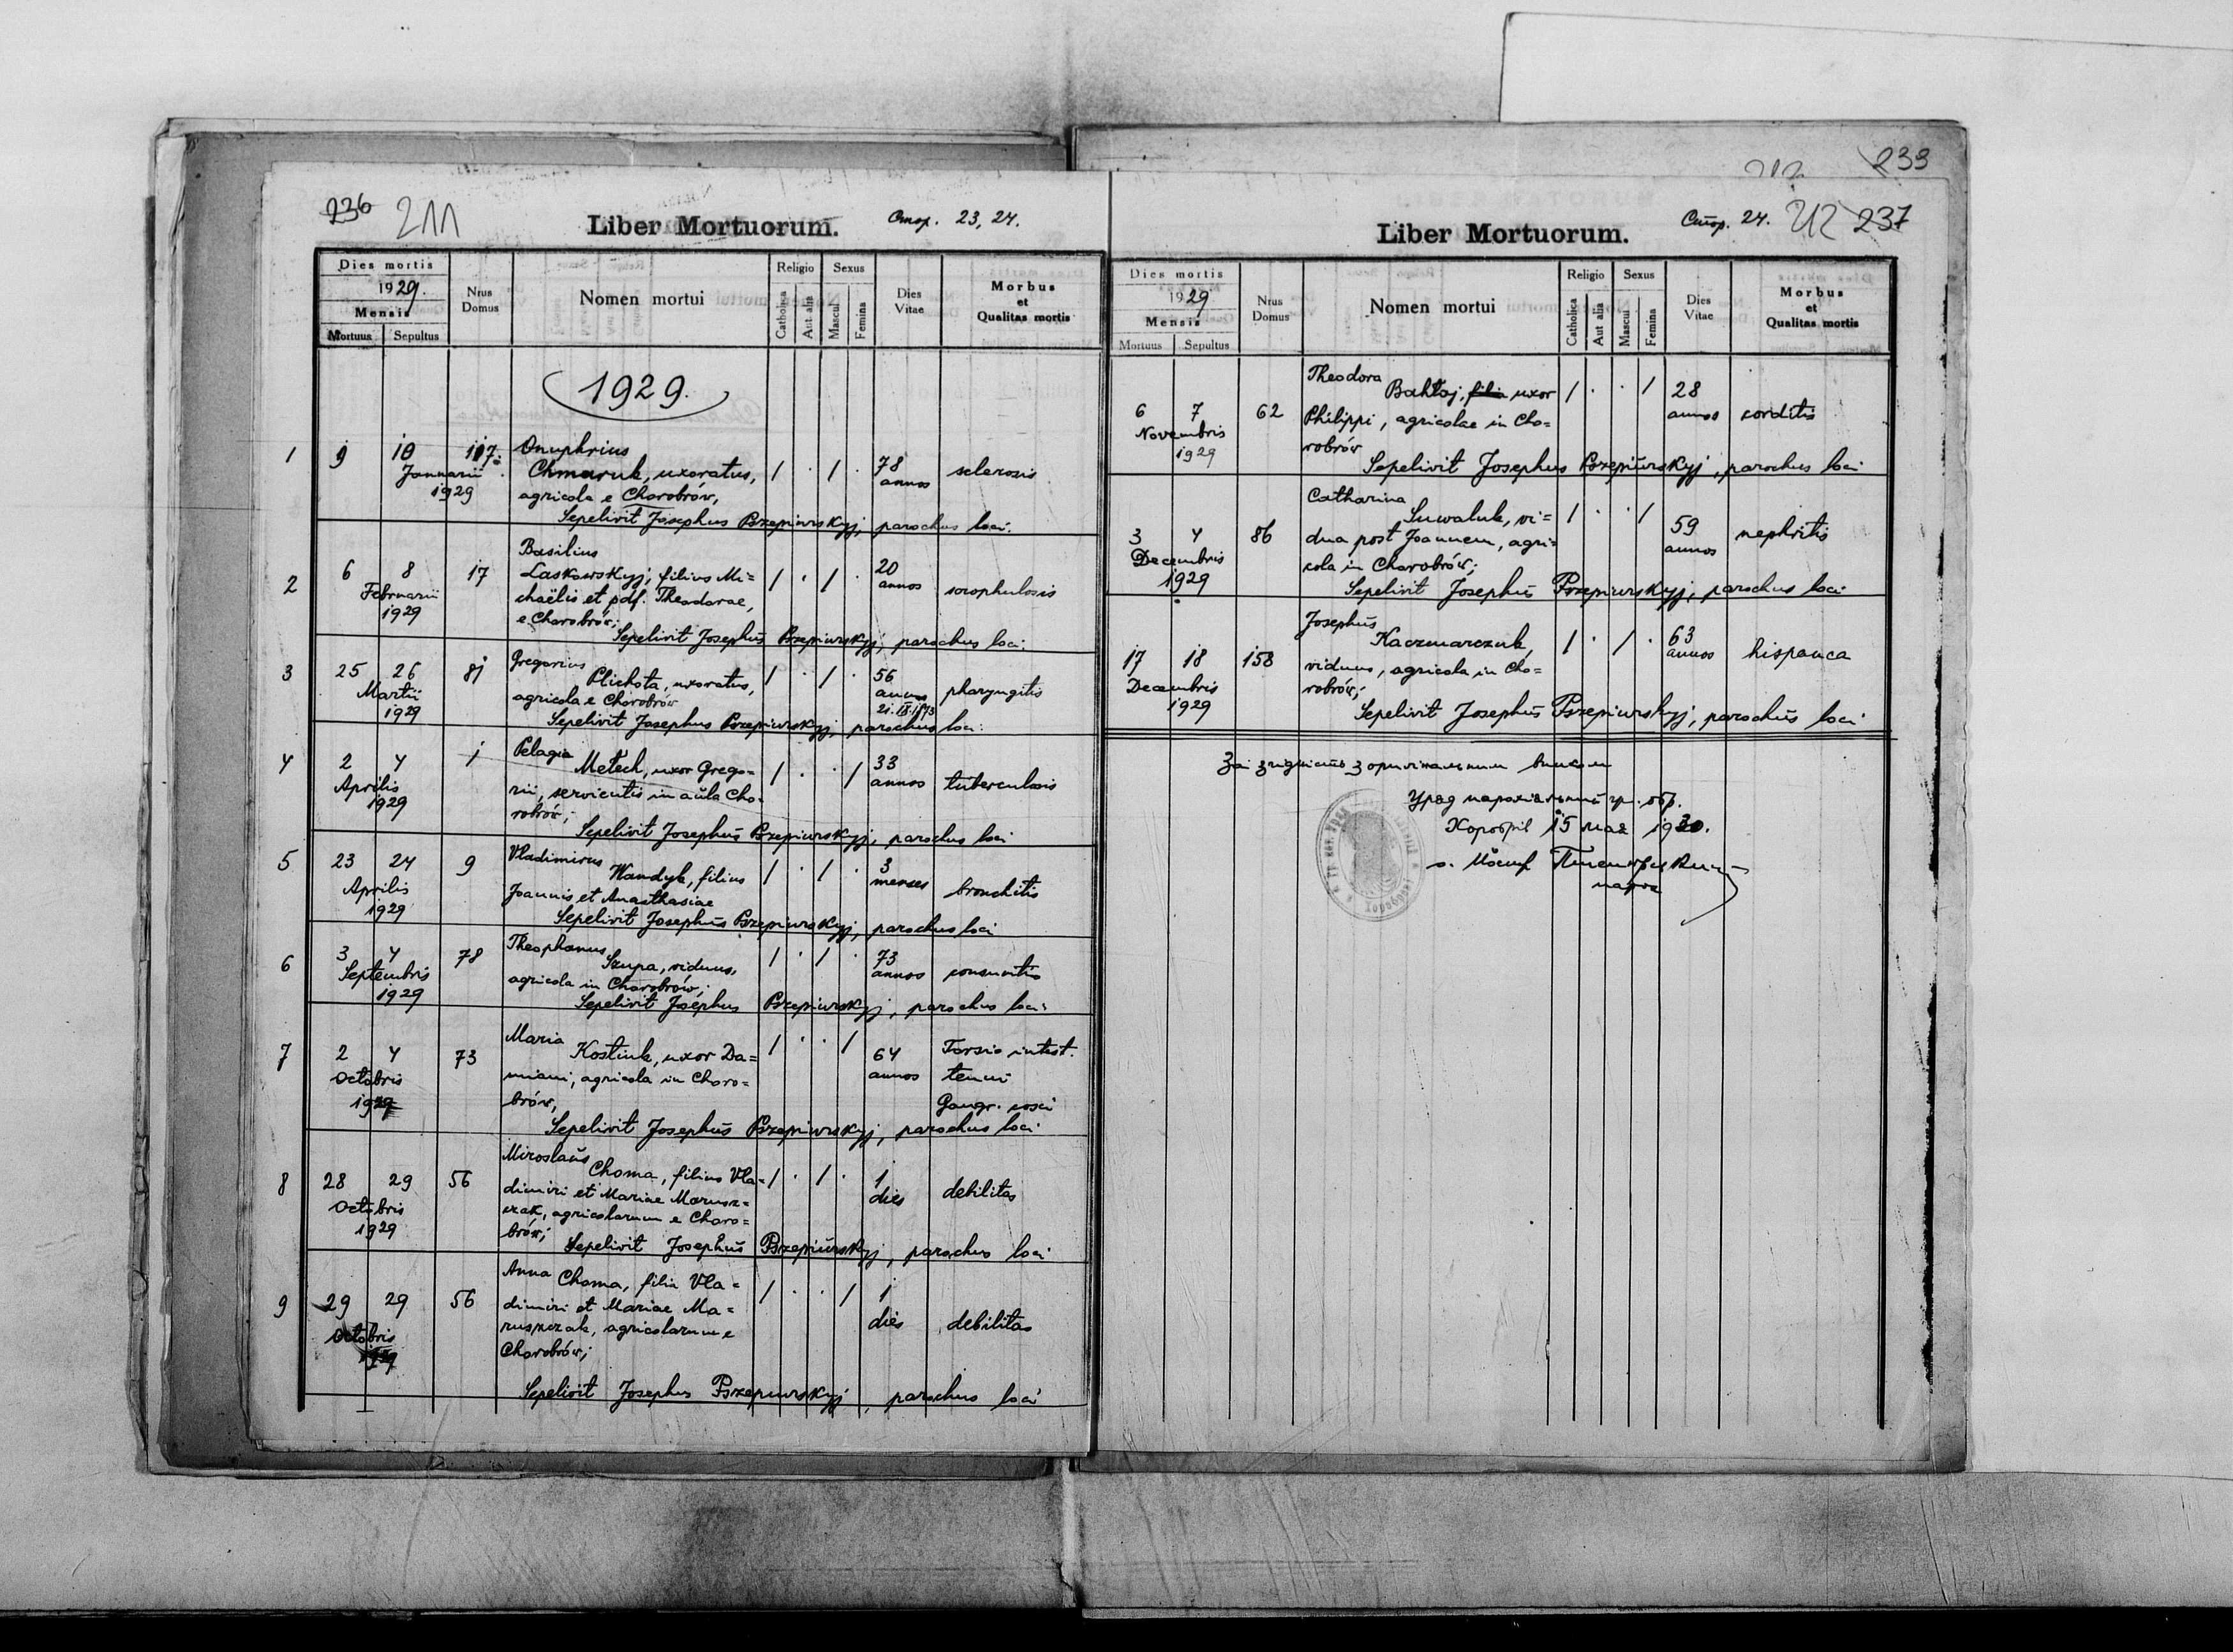 236 211
Liber Mortuorum.
Стор. 23, 24.
Dies mortis
1929.
Mensis
Mortuus Sepultus
Nrus Domus
Nomen mortui
Religio
Catholica
Aut alia
Sexus
Mascul
Femina
Dies Vitae
Morbus
et
Qualitas mortis
1929.
1 9 10 Januarii 1929 117
Onuphrius
Chmaruk, uxoratus,
agricola e Chorobrów,
/ . / . 78 annos sclerosis
Sepelivit Josephus Pszepiurskyj, parochus loci.
2 6 8 Februarii 1929 17
Basilius
Laskowskyj, filius Mi=
chaëlis et pdf. Theodorae,
e Chorobrów;
/ . / . 20 annos scrophulosis
Sepelivit Josephus Pszepiurskyj, parochus loci.
3 25 26 Martii 1929 81
Gregorius
Plichota, uxoratus,
agricola e Chorobrów
/ . / . 56 annos pharyngitis
Sepelivit Josephus Pszepiurskyj, parochus loci.
4 2 4 Aprilis 1929 1
Pelagia
Metech, uxor Grego=
rii, servientis in aula Cho=
robrów;
/ . . / 33 annos tuberculosis
Sepelivit Josephus Pszepiurskyj, parochus loci
5 23 24 Aprilis 1929 9
Vladimirus
Wandyk, filius
Joannis et Anasthasiae
/ . / . 3 menses bronchitis
Sepelivit Josephus Pszepiurskyj, parochus loci
6 3 4 Septembris 1929 78
Theophanus
Szupa, viduus,
agricola in Chorobrów;
/ . / . 73 annos
Sepelivit Josephus Pszepiurskyj, parochus loci.
7 2 4 Octobris 1929 73
Maria
Kostiuk, uxor Da=
miani, agricola in Choro=
brów,
/ . . / 64 annos Torsio intest.
tenui
Gangr.
Sepelivit Josephus Pszepiurskyj, parochus loci
8 28 29 Octobris 1929 56
Miroslaus
Choma, filius Vla=
dimiri et Mariae Marusz=
czak, agricolarum e Choro=
brów;
/ . / . 1 dies debilitas
Sepelivit Josephus Pszepiurskyj, parochus loci
9 29 29 Octobris 1929 56
Anna Choma, filia Vla=
dimiri et Mariae Ma=
ruszczak, agricolarum e
Chorobrów;
/ . . / 1 dies debilitas
Sepelivit Josephus Pszepiurskyj, parochus loci
233
Liber Mortuorum.
Стор. 24. 212 237
Dies mortis
1929
Mensis
Mortuus Sepultus
Nrus Domus
Nomen mortui
Religio
Catholica
Aut alia
Sexus
Mascul
Femina
Dies Vitae
Morbus
et
Qualitas mortis
6 7 Novembris 1929 62
Theodora
Bahtaj, filia uxor
Philippi, agricolae in Cho=
robrów
/ . . / 28 annos corditis
Sepelivit Josephus Pszepiurskyj, parochus loci
3 4 Decembris 1929 86
Catharina
Suwaluk, vi=
dua post Joannem, agri=
cola in Chorobrów;
/ . . / 59 annos nephritis
Sepelivit Josephus Pszepiurskyj, parochus loci
17 18 Decembris 1929 158
Josephus
Kaczmarczuk,
viduus, agricola in Cho=
robrów;
/ . / . 63 annos hispanca
Sepelivit Josephus Pszepiurskyj, parochus loci
За згідність з оригінальним
Уряд парохіяльний гр. обр.
Хоробрів 15 мая 1930.
о. Йосиф
парох